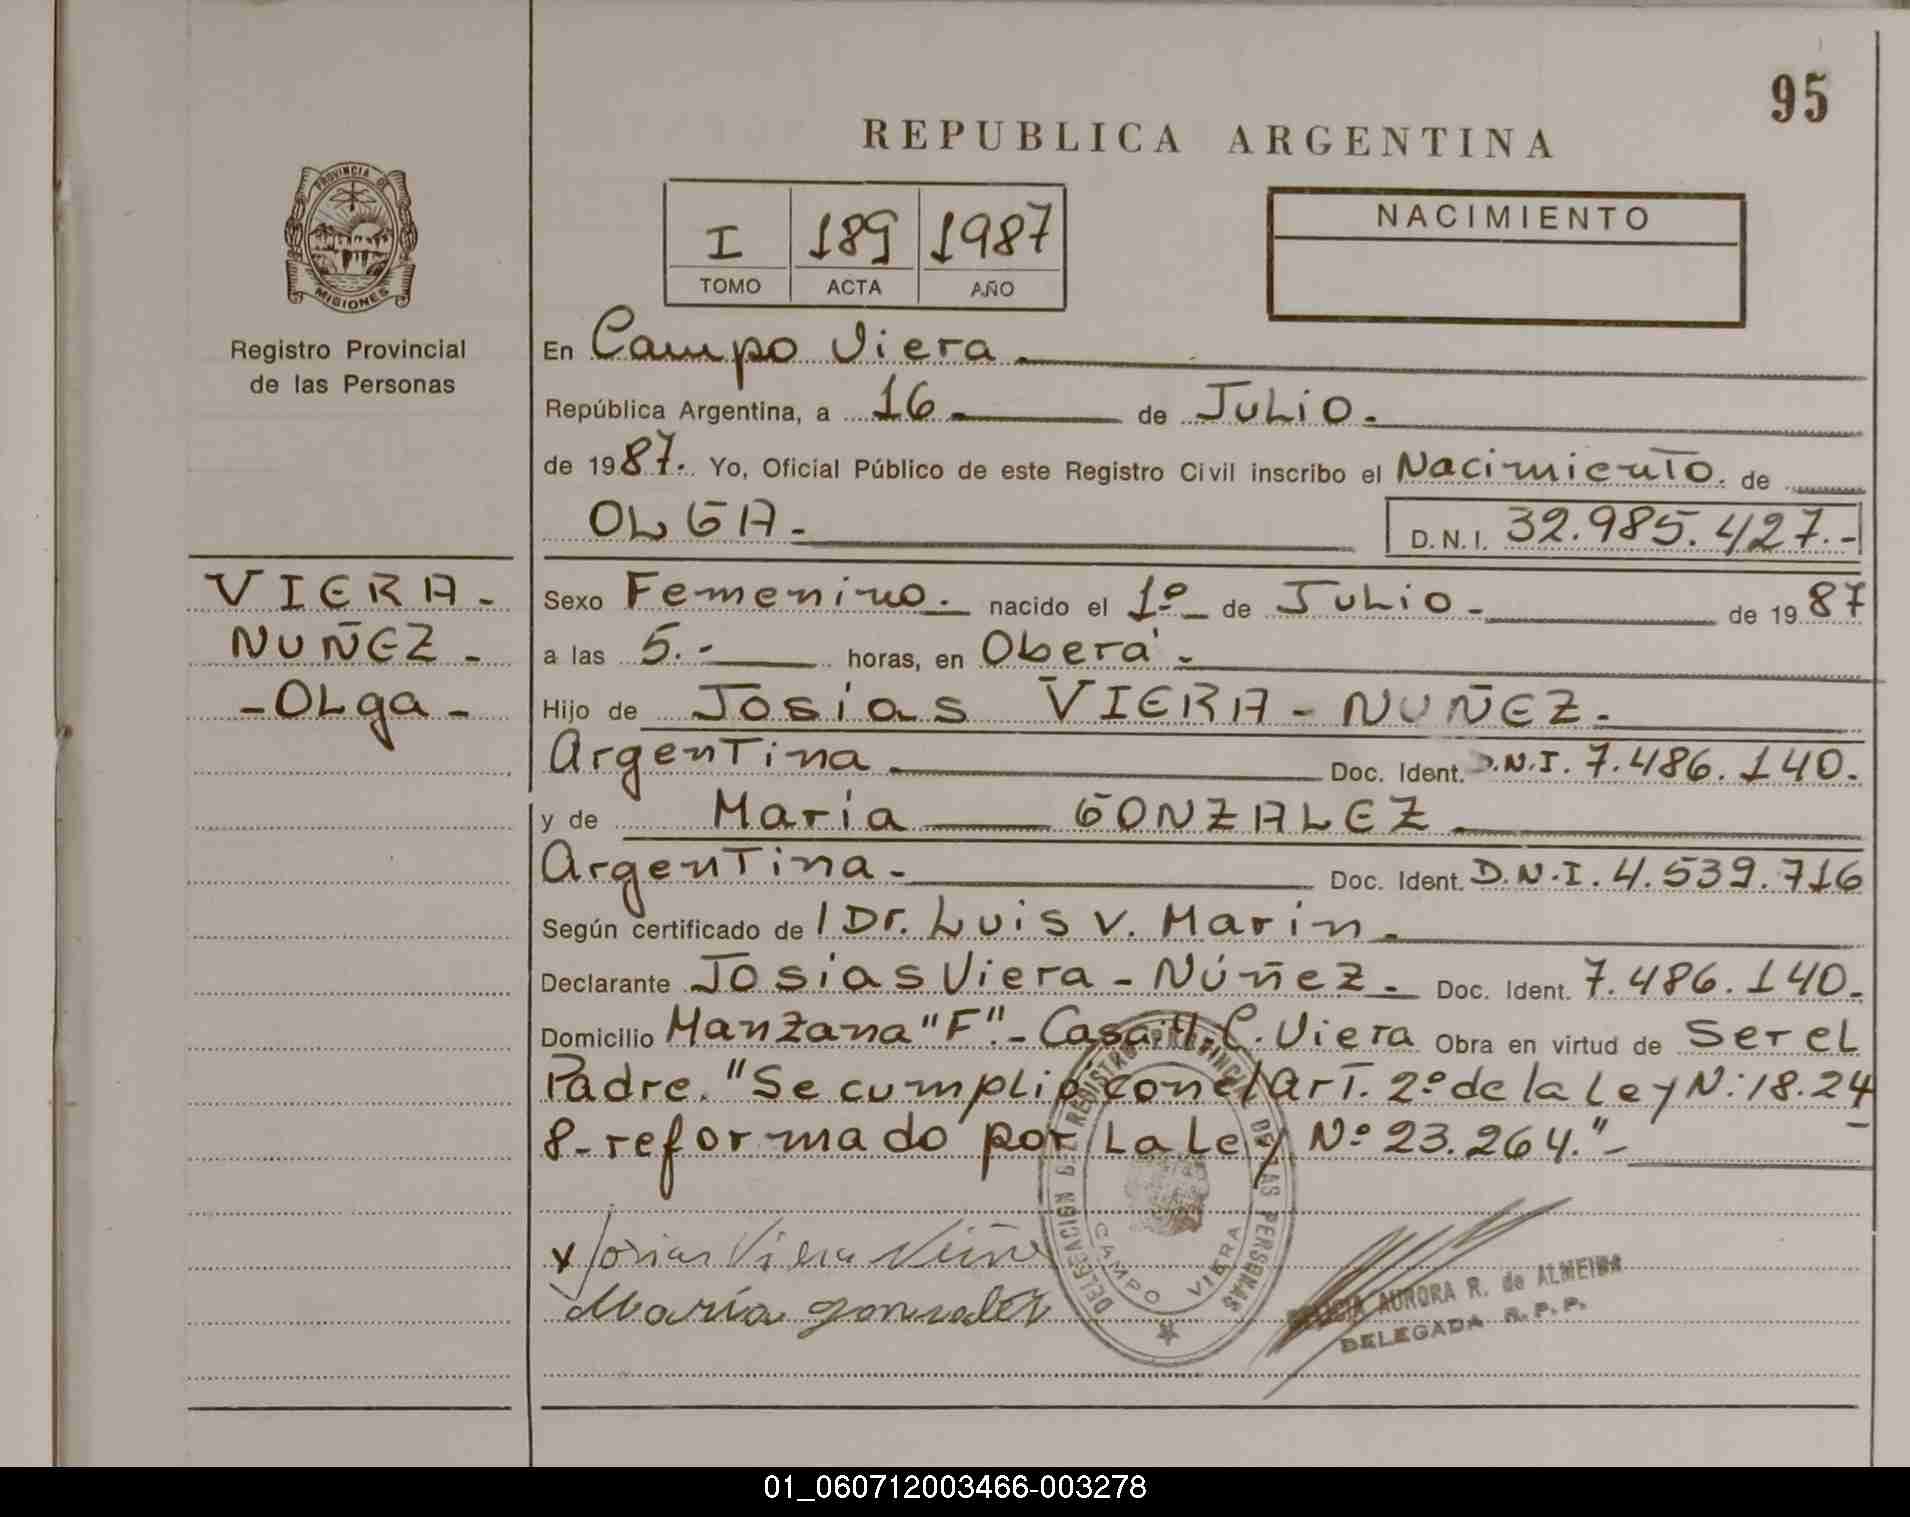 95
REPUBLICA ARGENTINA
PROVINCIA DE
MISIONES
Registro Provincial
de las Personas
I 189 1987
TOMO ACTA AÑO
NACIMIENTO
En Campo Viera
República Argentina, a 16 de Julio.
de 1987. Yo, Oficial Público de este Registro Civil inscribo el Nacimiento. de
OLGA- D.N.I. 32.985.427.-
VIERA-
NUÑEZ-
-OLga-
Sexo Femenino. nacido el 1º de Julio- de 1987
a las 5.- horas, en Oberá.
Hijo de Josías VIERA-NUÑEZ.
Argentina Doc. Ident. D.N.I. 7.486.140.
y de María GONZALEZ
Argentina- Doc. Ident. D.N.I. 4.539.716
Según certificado de / Dr. Luis V. Marin.
Declarante Josías Viera-Núñez. Doc. Ident. 7.486.140.
Domicilio Manzana "F".- Casa C. Viera Obra en virtud de Ser el
Padre. "Se cumplió con el Art. 2º de la Ley N: 18.24
8-reformado por La Ley Nº 23.264."-
x Josias Viera Núñe
María gonzalez
DELEGACION DEL REGISTRO PROVINCIAL DE LAS PERSONAS
CAMPO VIERA
AURORA R. de ALMEIDA
DELEGADA R. P. P.
01_060712003466-003278